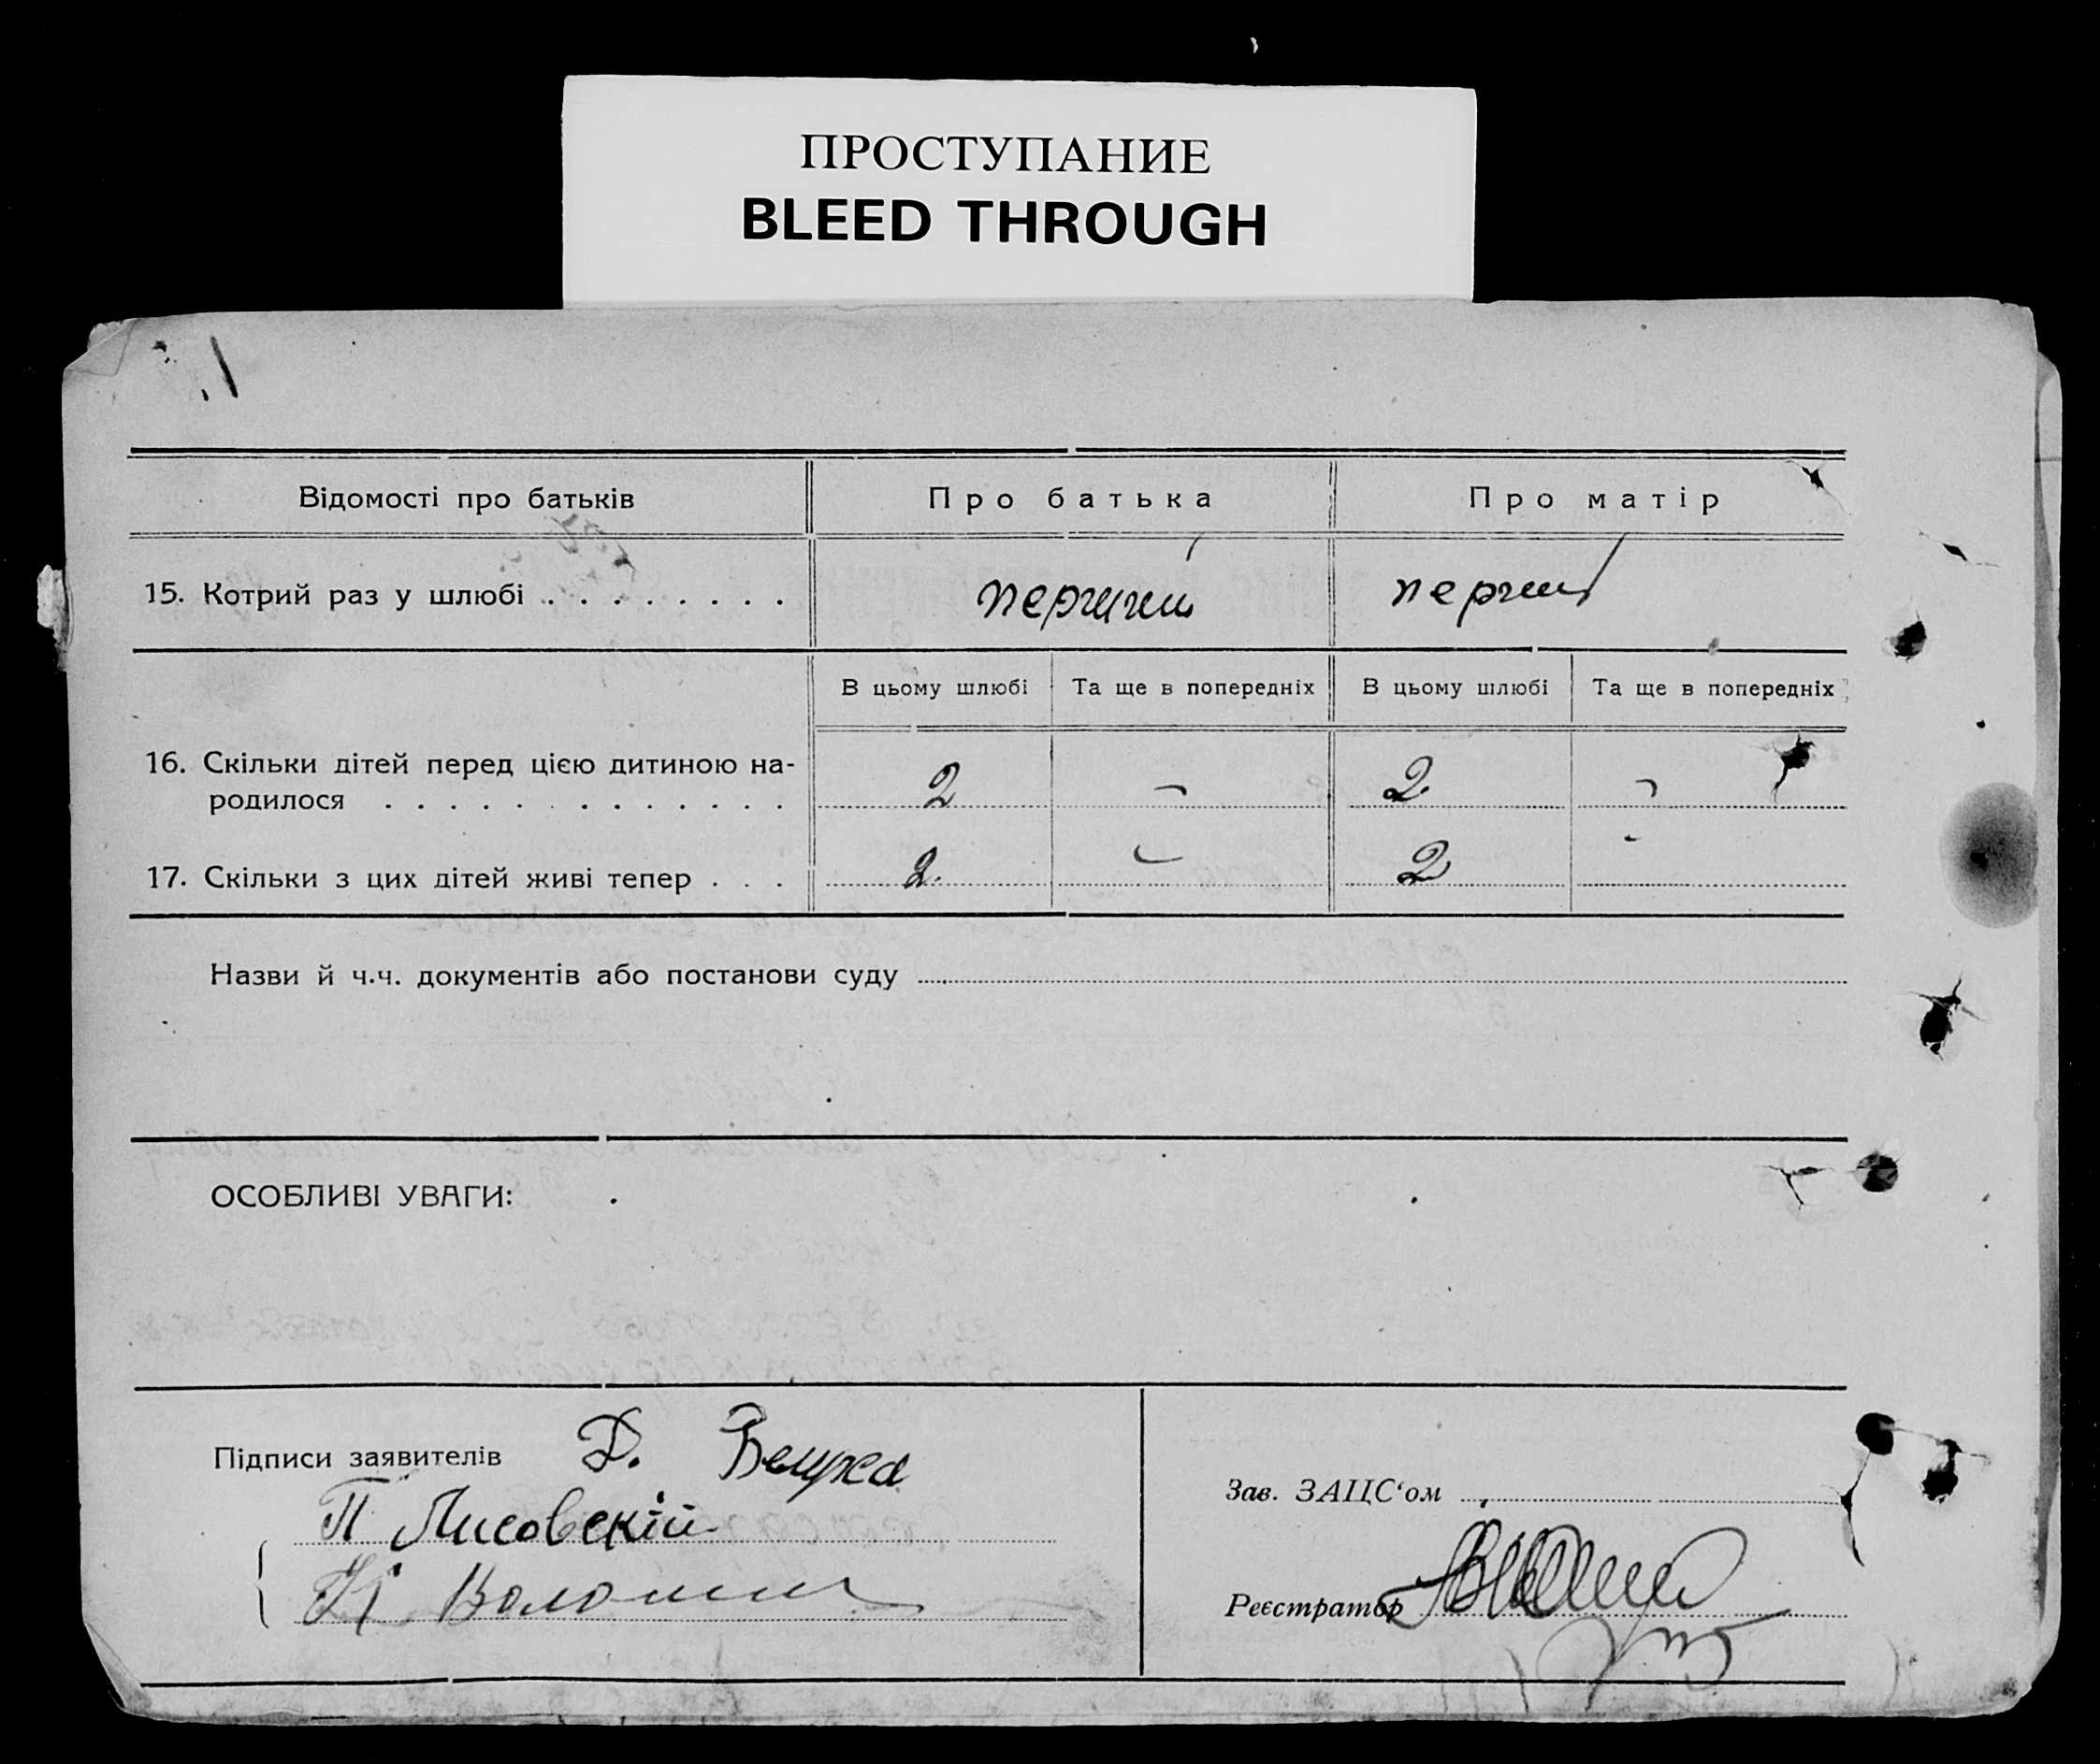 ПРОСТУПАНИЕ
BLEED THROUGH
Відомості про батьків
Про батька
Про матір
15. Котрий раз у шлюбі . . . . . . . .
перший
перший
В цьому шлюбі
Та ще в попередніх
В цьому шлюбі
Та ще в попередніх
16. Скільки дітей перед цією дитиною на-
родилося . . . . . . . . . . . . .
2 – 2 –
17. Скільки з цих дітей живі тепер . . .
2. – 2 -
Назви й ч.ч. документів або постанови суду
ОСОБЛИВІ УВАГИ:
Підписи заявителів Д.
П Лисовскій
Зав. ЗАЦС‘ом
Реєстратор